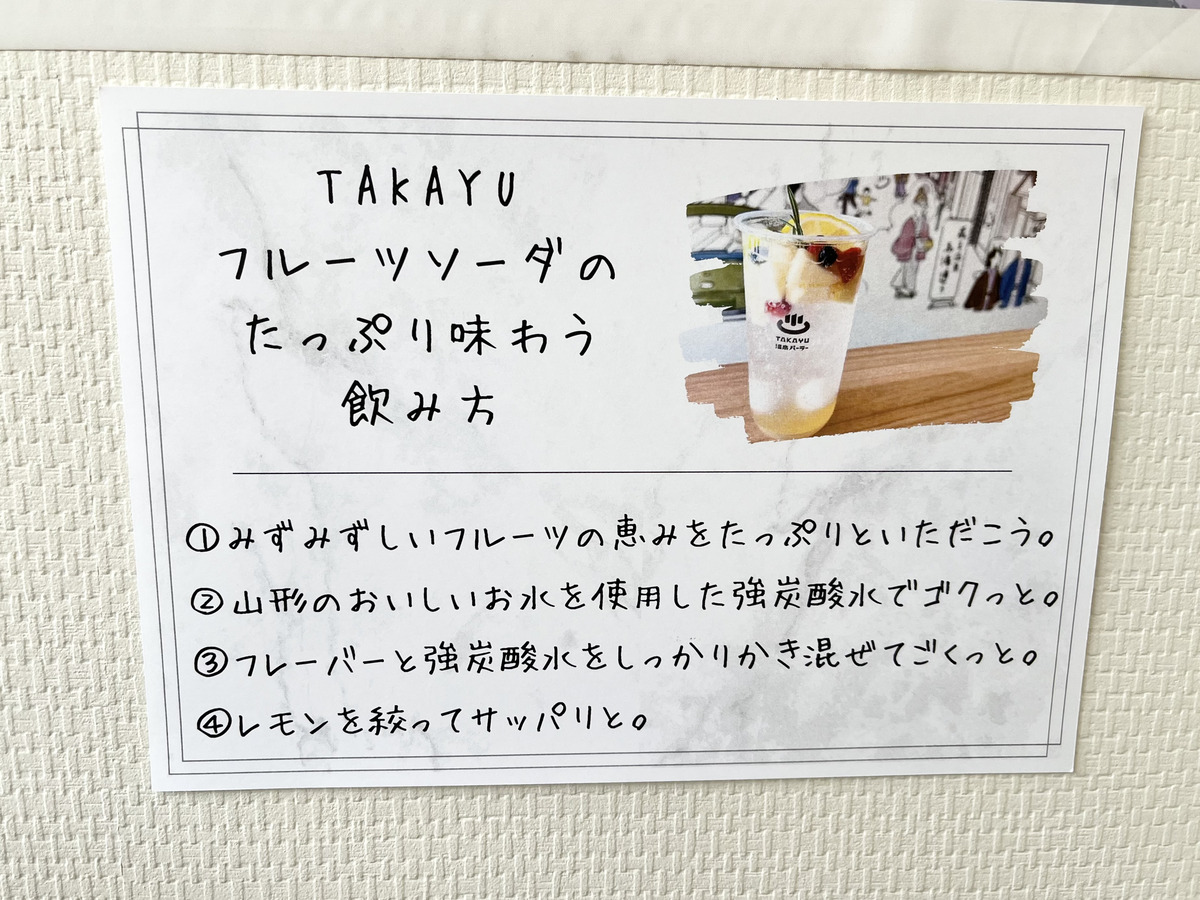 TAKAYU
フルーツソーダの
たっぷり味わう
飲み方
TAKAYU
温泉パーラー
①みずみずしいフルーツの恵みをたっぷりといただこう。
②山形のおいしいお水を使用した強炭酸水でゴクっと。
③フレーバーと強炭酸水をしっかりかき混ぜてごくっと。
④レモンを絞ってサッパリと。